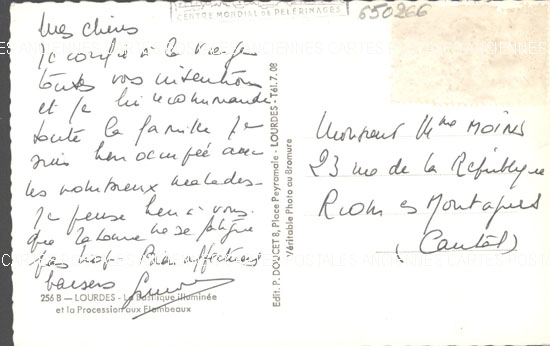 CENTRE MONDIAL DE PÈLERINAGES
650266
Mes chères
Je confie à la Vierge
toutes vos intentions
et je lui recommande
toute la famille je
suis bien occupée avec
les nombreux malades.
Je pense bien à vous
que la bonne ne se fatigue
pas trop. Bien affectueux
baisers
256 B — LOURDES - La Basilique illuminée
et la Procession aux Flambeaux
Edit. P. DOUCET 8, Place Peyramale - LOURDES - Tél. 7.08
Véritable Photo au Bromure
Monsieur Mme MOINS
23 rue de la République
Riom es Montagnes
(Cantal)